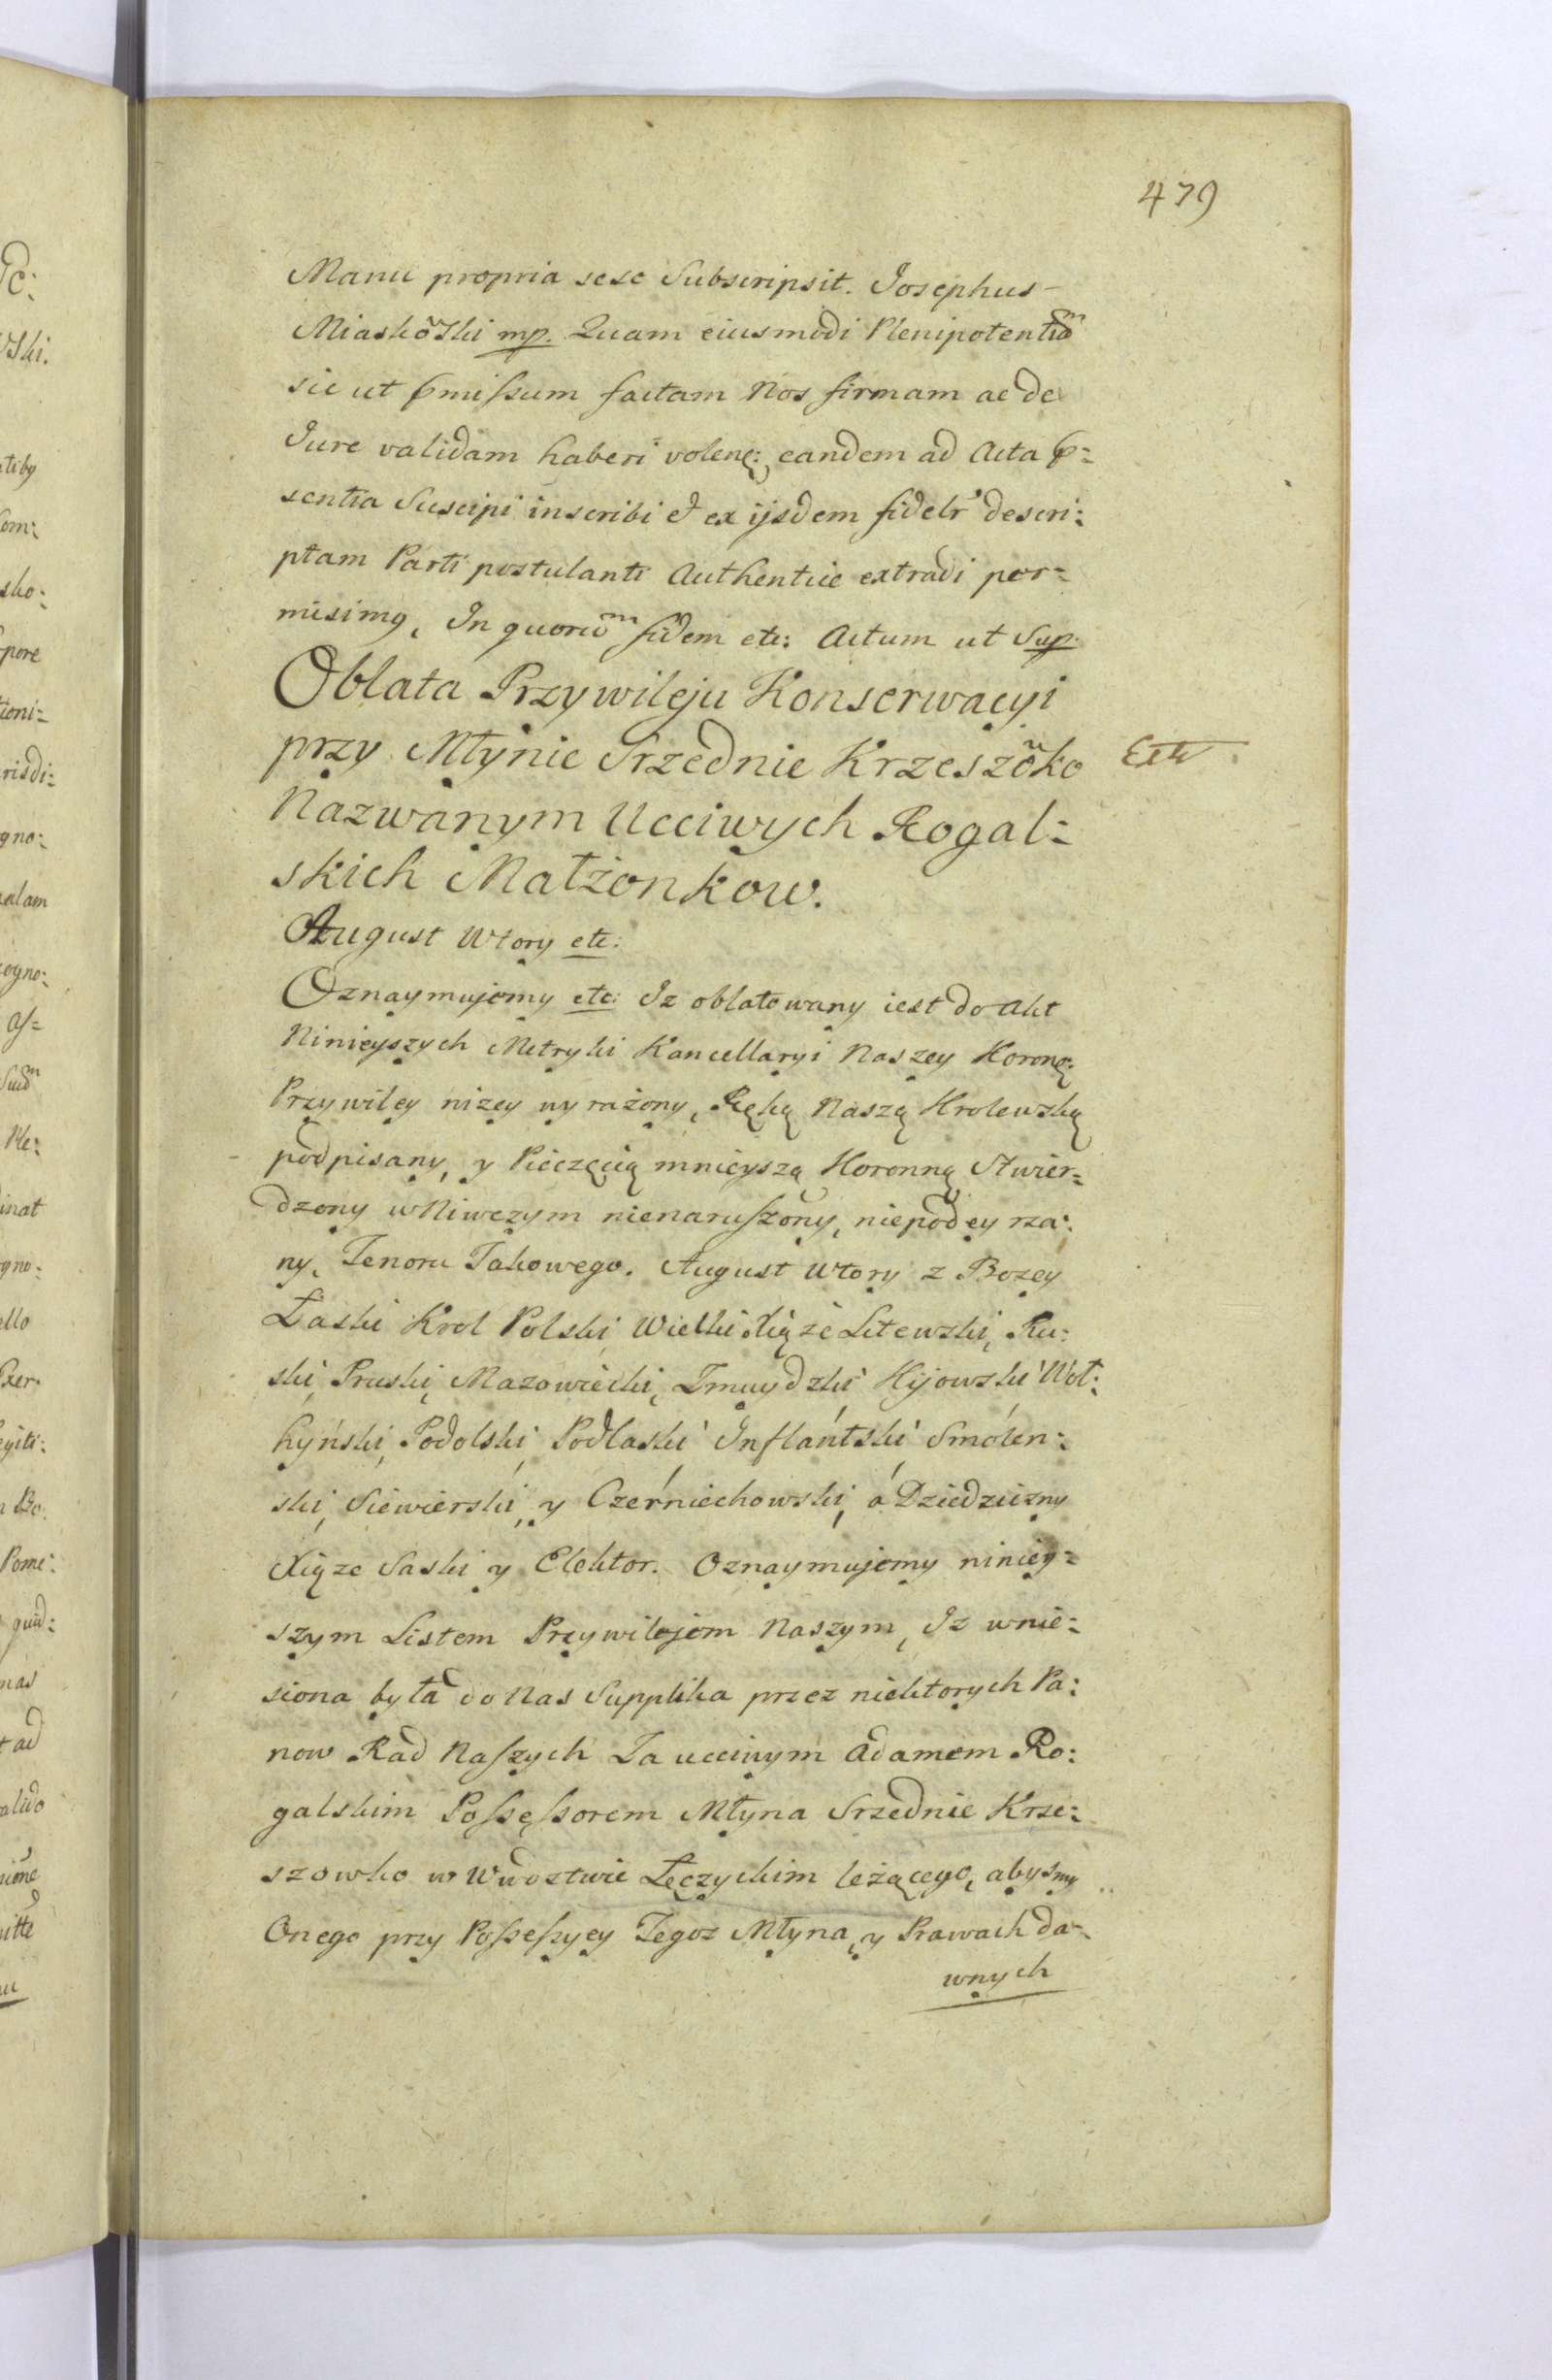 479
Manu propria sese Subscripsit. Josephus –
Miaskowski mp. Quam eiusmodi Plenipotentiam
sic ut pmissum factam Nos firmam ac de
Jure validam haberi volenę: eandem ad Acta p=
sentia Suscipi inscribi et ex ijsdem fidelr descri:
ptam Parti postulanti Authentice extradi per=
misimg, In quorum fidem etc: Actum ut Sup.
Oblata Przywileju Konserwacyi
przy Młynie Srzednie Krzeszowko
Extr
Nazwanym Ucciwych Rogal:
skich Małżonkow.
August Wtory etc:
Oznaymujemy etc: Iz oblatowany iest do Akt
Ninieyszych Metryki Kancellaryi Naszey Koronę:
Przywiley nizey wyrażony, Ręką Naszą Krolewską
podpisany, y Pieczęcią mnieyszą Koronną Stwier=
dzony w Niwczym nienaruszony, niepodeyrza:
ny, Tenoru Takowego. August Wtory z Bozey
Łaski Krol Polski, Wielki Xiąże Litewski, Ru:
ski, Pruski, Mazowiecki, Zmuydzki Kijowski Woł:
hyński, Podolski, Podlaski Inflantski Smolen:
ski, Siewierski, y Czerniechowski, a Dziedziczny
Xiąze Saski y Elektor. Oznaymujemy niniey=
szym Listem Przywilejem Naszym, Iz wnie:
siona była do Nas Supplika przez niektorych Pa:
now Rad Naszych Za ucciwym Adamem Ro:
galskim Possessorem Młyna Srzednie Krze:
szowko w Wdoztwie Łęczyckim leżącego, abysmy
Onego przy Possessyey Tegoz Młyna, y Prawach da=
wnych